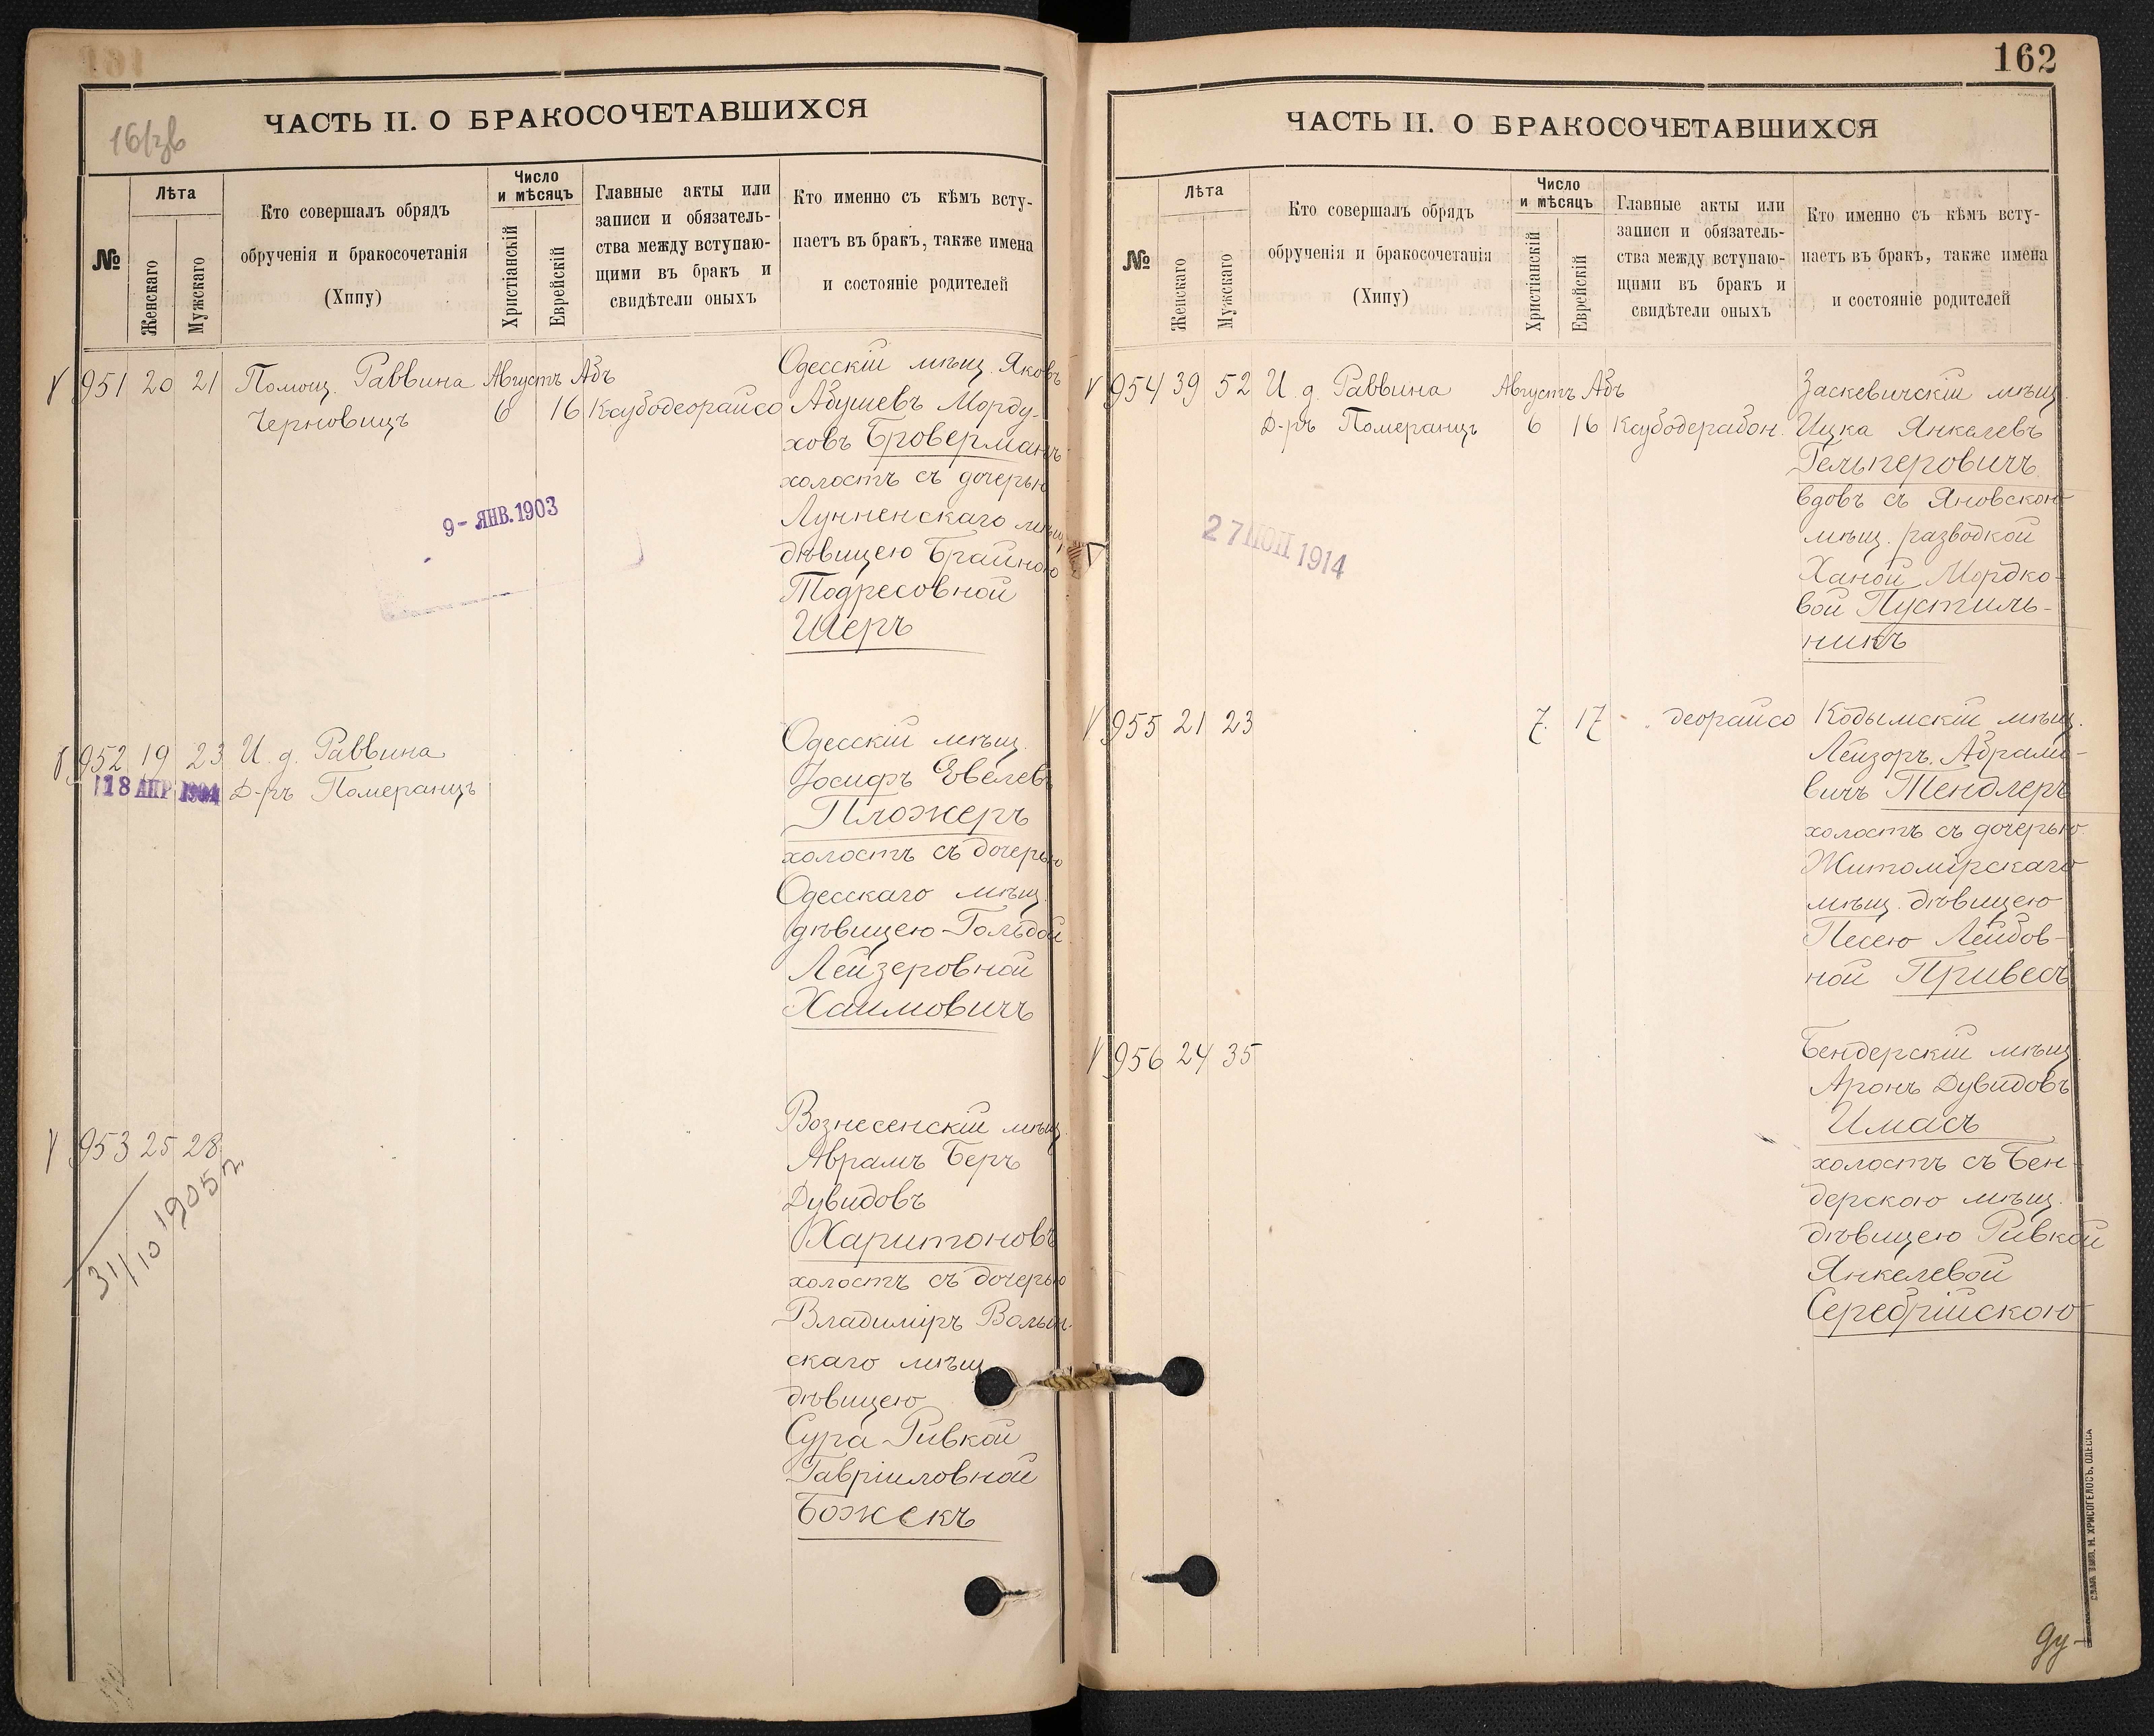 16/зв
ЧАСТЬ II. О БРАКОСОЧЕТАВШИХСЯ
№
Лѣта
Женскаго
Мужскаго
Кто совершалъ обрядъ
обрученія и бракосочетанія
(Хипу)
Число
и мѣсяцъ
Христіанскій
Еврейскій
Главные акты или
записи и обязатель-
ства между вступаю-
щими въ бракъ и
свидѣтели оныхъ
Кто именно съ кѣмъ всту-
паетъ въ бракъ, также имена
и состояніе родителей
951 20 21 Помощ. Раввина
Черновицъ
Августъ Абъ
6 16 Каубодеорайсо
Одесскій мѣщ. Яковъ
Абушевъ Морду-
ховъ Броверманъ
холостъ съ дочерью
Лунненскаго мѣщ.
дѣвицею Брайною
Тодресовной
Шеръ
9- ЯНВ. 1903
952 19 23 И. д. Раввина
Д-ръ Померанцъ
18 АПР 1904
Одесскій мѣщ.
Іосифъ Эвелевъ
Пложеръ
холостъ съ дочерью
Одесскаго мѣщ.
дѣвицею Гольдой
Лейзеровной
Хаимовичъ
953 25 28
31/10 1905 г.
Вознесенскій мѣщ.
Аврамъ Беръ
Дувидовъ
Харитоновъ
холостъ съ дочерью
Владиміръ Волын-
скаго мѣщ.
дѣвицею
Сура-Ривкой
Гавріиловной
Божекъ
162
ЧАСТЬ II. О БРАКОСОЧЕТАВШИХСЯ
№
Лѣта
Женскаго
Мужскаго
Кто совершалъ обрядъ
обрученія и бракосочетанія
(Хипу)
Число
и мѣсяцъ
Христіанскій
Еврейскій
Главные акты или
записи и обязатель-
ства между вступаю-
щими въ бракъ и
свидѣтели оныхъ
Кто именно съ кѣмъ всту-
паетъ въ бракъ, также имена
и состояніе родителей
954 39 52 И. д. Раввина
Д-ръ Померанцъ
Августъ Абъ
6 16 Каубодерабон.
Заскевичскій мѣщ.
Ицка Янкелевъ
Гельперовичъ
вдовъ съ Яновскою
мѣщ. разводкой
Ханой Мордко-
вой Пустиль-
никъ
27 1914
955 21 23
7. 17 деорайсо
Кодымскій мѣщ.
Лейзоръ Абрамо-
вичъ Тендлеръ
холостъ съ дочерью
Житомірскаго
мѣщ. дѣвицею
Песею Лейбов-
ной Привесъ
956 24 35
Бендерскій мѣщ.
Аронъ Дувидовъ
Имасъ
холостъ съ Бен-
дерскою мѣщ.
дѣвицею Ривкой
Янкелевой
Серебрійскою
М. ХРИСОГЕЛОСЪ, ОДЕССА
Ду-